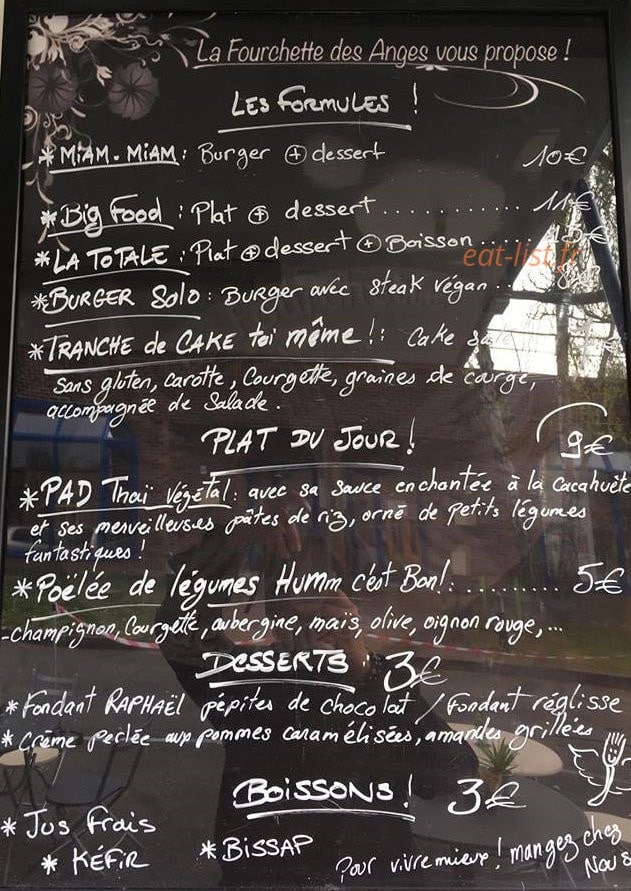 La Fourchette des Anges vous propose !
LES FORMULES !
* MIAM-MIAM : Burger + dessert 10€
* Big Food : Plat + dessert............ 11€
* LA TOTALE : Plat + dessert + Boisson....
eat-list.fr
* BURGER Solo : BURGER avec steak végan..
* TRANCHE de CAKE toi même ! : Cake
Sans gluten, carotte, Courgette, graines de courge,
accompagnée de Salade.
PLAT DU JOUR ! 9€
* PAD Thaï Végétal : avec sa sauce enchantée à la Cacahuète
et ses merveilleuses pâtes de riz, orné de petits légumes
fantastiques !
* Poëlée de légumes Humm c'est Bon!.......... 5€
-champignon, Courgette, aubergine, maïs, olive, oignon rouge,...
DESSERTS : 3€
* Fondant RAPHAËL pépites de chocolat / Fondant réglisse
* Crème perlée aux pommes caramélisées, amandes grillées
BOISSONS ! 3€
* Jus frais
* KÉFIR
* BISSAP
Pour vivre mieux ! mangez chez
Nous